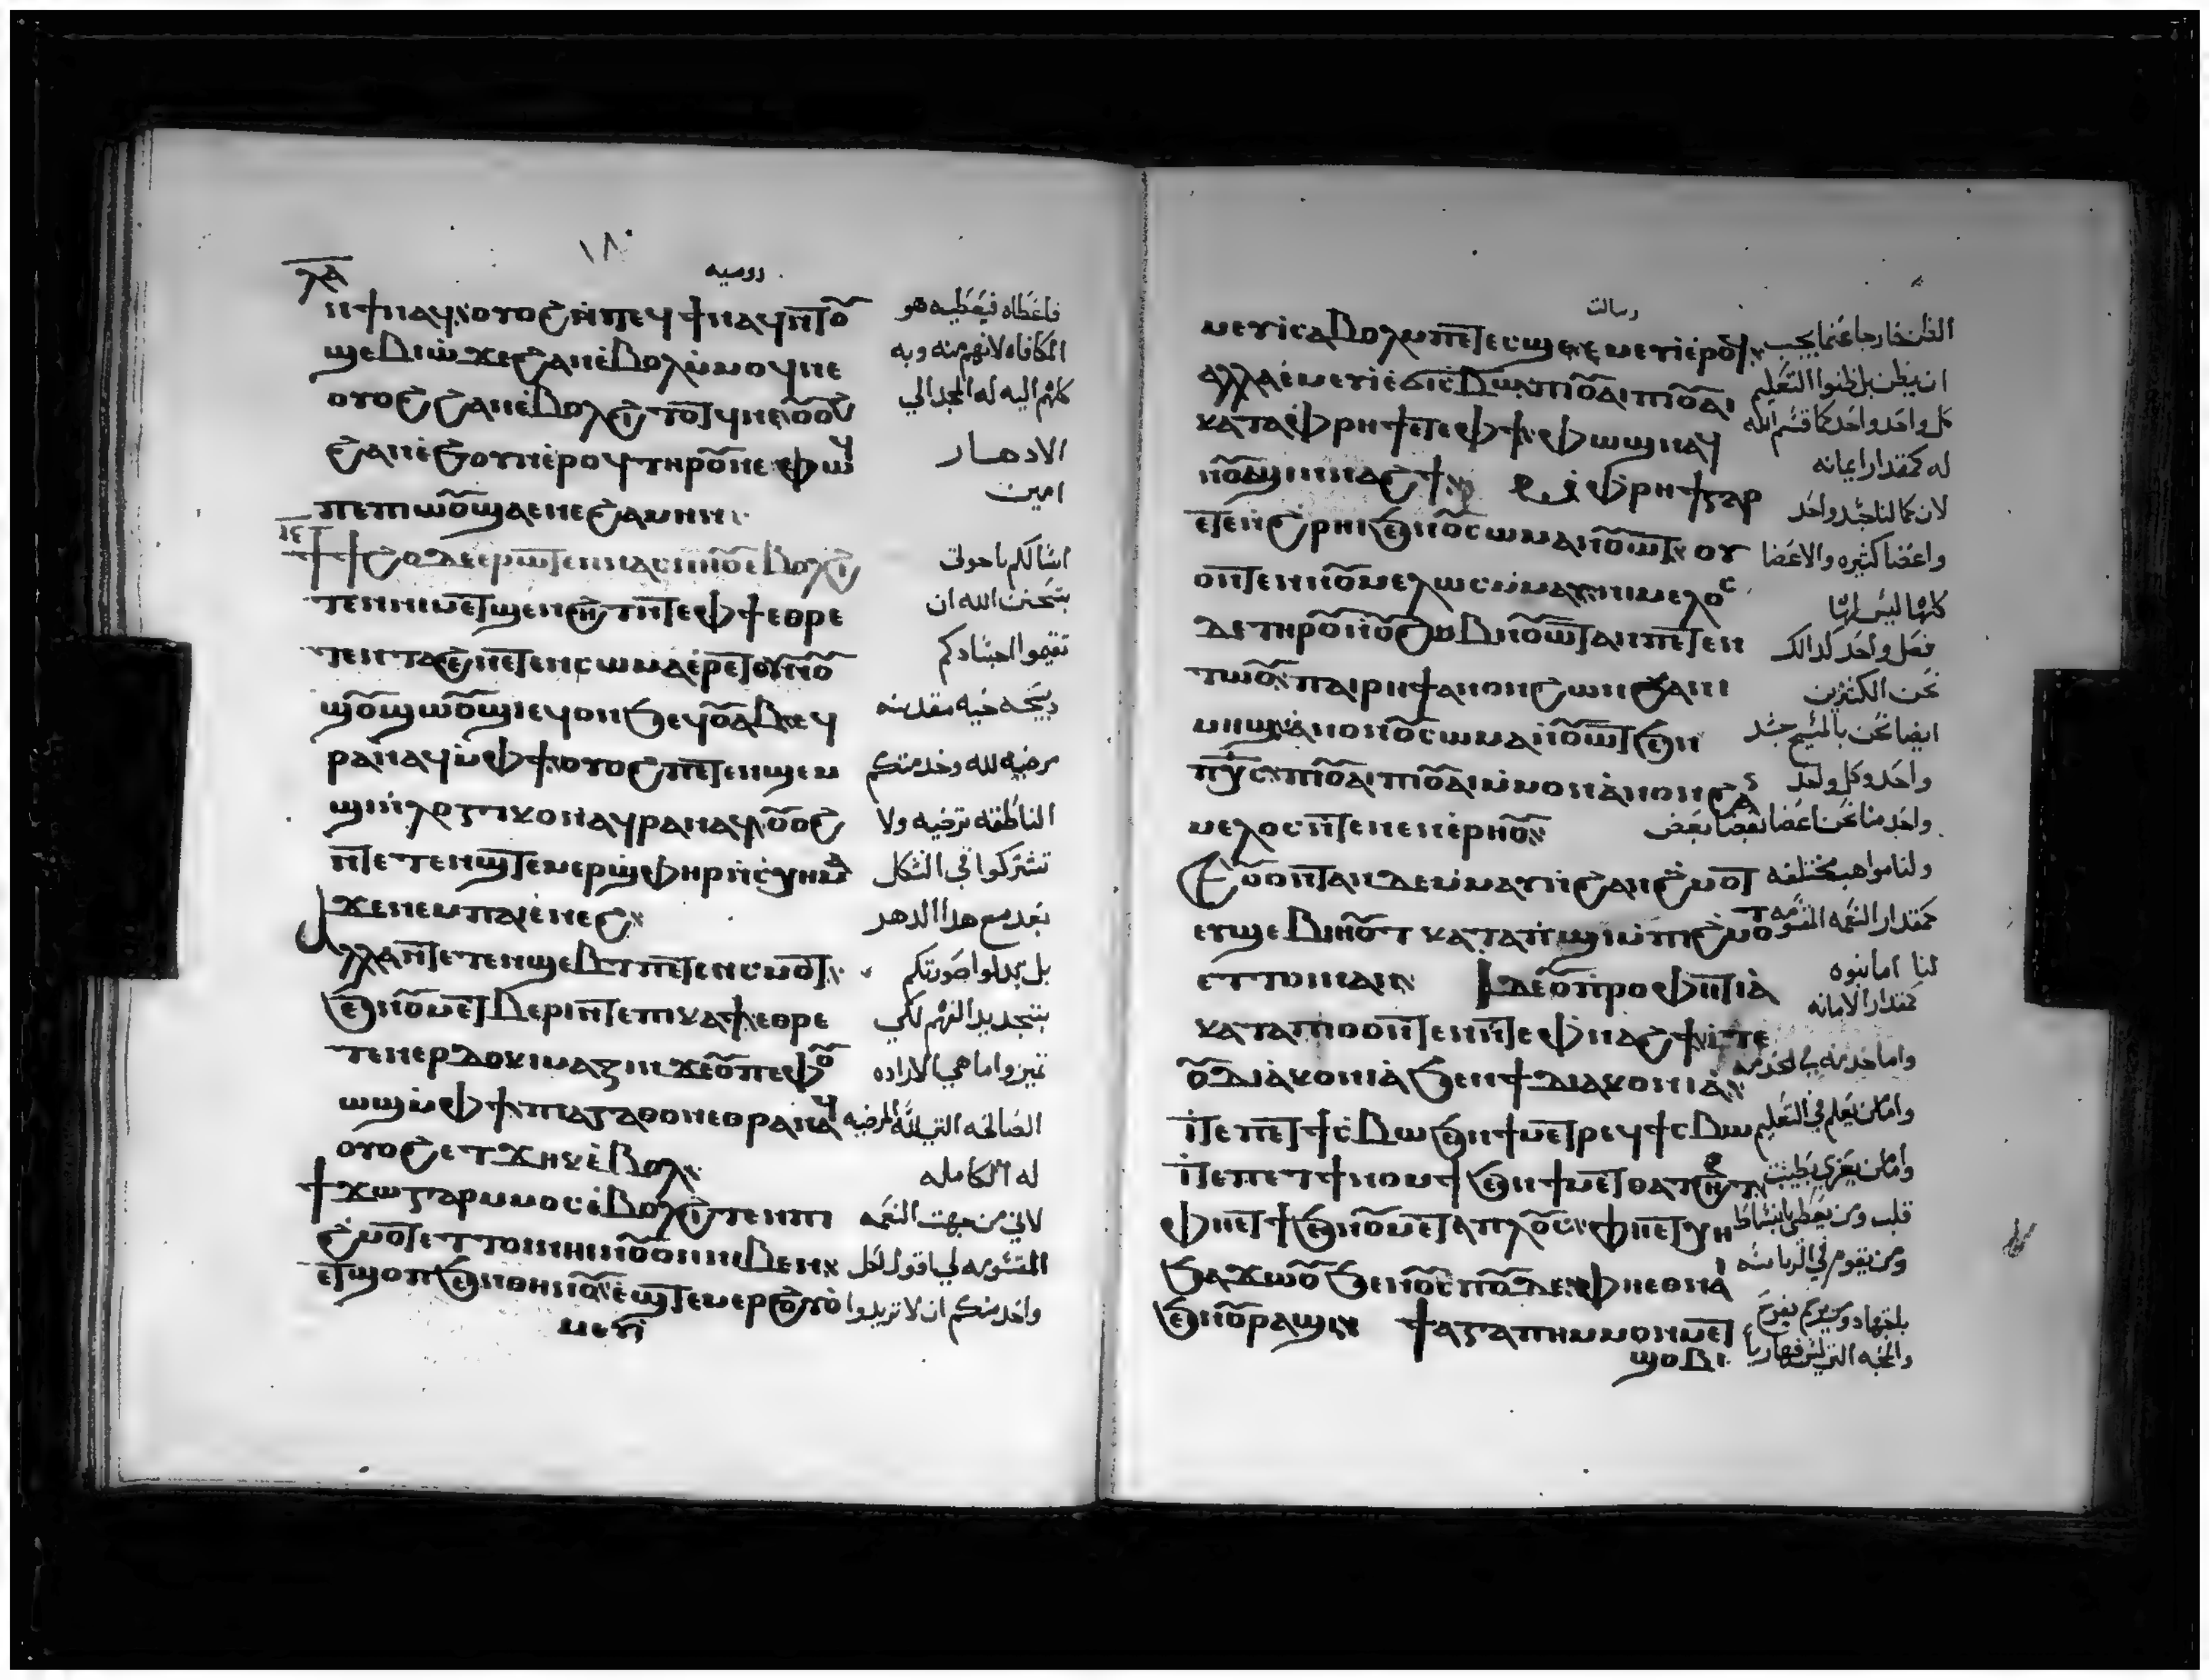 ⲗⲁ
١٨٠
روميه
ⲛϯⲛⲁϥ ⲟⲩⲟϩ ⲛⲧⲉϥϯⲛⲁϥ ⲛⲧⲟⲩ
ϣⲉⲃⲓⲱ ϫⲉ ϩⲁⲛⲉⲃⲟⲗ ⲙⲙⲟϥ ⲛⲉ
ⲟⲩⲟϩ ϩⲁⲛⲉⲃⲟⲗ ϩⲓⲧⲟⲧϥ ⲛⲉ ⲟⲩⲟϩ
ϩⲁⲛⲉϧⲟⲩⲛ ⲉⲣⲟϥ ⲧⲏⲣⲟⲩ ⲛⲉ ⲫⲱϥ
ⲡⲉ ⲡⲓⲱⲟⲩ ϣⲁ ⲉⲛⲉϩ ⲁⲙⲏⲛ
ⲓⲃ
ϯϯϩⲟ ⲇⲉ ⲉⲣⲱⲧⲉⲛ ⲛⲁⲥⲛⲏⲟⲩ ⲉⲃⲟⲗ ϩⲓ
ⲧⲉⲛ ⲛⲓⲙⲉⲧϣⲉⲛϩⲏⲧ ⲛⲧⲉ ⲫϯ ⲉⲑⲣⲉ
ⲧⲉⲛⲧⲁϩⲉ ⲛⲉⲧⲉⲛⲥⲱⲙⲁ ⲉⲣⲉⲧⲟⲩ ⲛⲟⲩ
ϣⲟⲩϣⲱⲟⲩϣⲓ ⲉϥⲟⲛϧ ⲉϥⲟⲩⲁⲃ ⲉϥ
ⲣⲁⲛⲁϥ ⲙⲫϯ ⲟⲩⲟϩ ⲡⲉⲧⲉⲛϣⲉⲙ
ϣⲓ ⲛⲗⲟⲅⲓⲕⲟⲛ ⲁϥⲣⲁⲛⲁϥ ⲟⲩⲟϩ
ⲛⲧⲉⲧⲉⲛϣⲧⲉⲙⲉⲣϣⲫⲏⲣ ⲛⲥⲭⲏⲙⲁ
ϫⲉ ⲛⲉⲙ ⲡⲁⲓⲉⲛⲉϩ
ⲁⲗⲗⲁ ⲛⲧⲉⲧⲉⲛϣⲉⲃⲧ ⲡⲉⲧⲉⲛⲥⲙⲟⲧ
ϧⲉⲛ ⲟⲩⲙⲉⲧⲃⲉⲣⲓ ⲛⲧⲉ ⲡⲓⲕⲁϯ ⲉⲑⲣⲉ
ⲧⲉⲛⲉⲣⲇⲟⲕⲓⲙⲁⲍⲓⲛ ϫⲉ ⲟⲩ ⲡⲉ ⲫⲟⲩ
ⲱϣ ⲙⲫϯ ⲡⲓⲁⲅⲁⲑⲟⲛ ⲉⲑⲣⲁⲛⲁϥ
ⲟⲩⲟϩ ⲉⲧϫⲏⲕ ⲉⲃⲟⲗ
ϯϫⲱ ⲅⲁⲣ ⲙⲙⲟⲥ ⲉⲃⲟⲗ ϩⲓⲧⲉⲛ ⲡⲓ
ϩⲙⲟⲧ ⲉⲧⲧⲟⲓ ⲛⲏⲓ ⲛⲟⲩⲟⲛ ⲛⲓⲃⲉⲛ
ⲉⲧϣⲟⲡ ϧⲉⲛ ⲑⲏⲛⲟⲩ ⲉϣⲧⲉⲙⲉⲣϩⲟⲩⲟ
ⲙⲉⲩⲓ
فاعطاه فيعطيه هو
المكافاه لانهم منه وبه
كلهم اليه له المجد الي
الادهار
امين
اسالكم ياخوتي
بتحنن الله ان
تقيموا اجسادكم
دبيحه حيه مقدسه
مرضيه لله وخدمتكم
الناطقه ترضيه ولا
تشتركوا في الشكل
بعد مع هدا الدهر
بل تبدلوا صورتكم
بتجديد الفهم لكي
تميزوا ما هي الاراده
الصالحه التي لله المرضيه
له الكامله
لاني من جهت النعمه
المقسومه لي اقول لكل
واحد منكم ان لا تريدوا
رسالت
ⲙⲉⲩⲓ ⲥⲁⲃⲟⲗ ⲙⲡⲉⲧⲉⲥϣⲉ ⲉⲙⲉⲩⲓ ⲉⲣⲟϥ
ⲁⲗⲗⲁ ⲉⲙⲉⲩⲓ ⲉϭⲓⲥⲃⲱ ⲡⲓⲟⲩⲁⲓ ⲡⲓⲟⲩⲁⲓ
ⲕⲁⲧⲁ ⲫⲣⲏϯ ⲉⲧⲉ ⲫϯ ⲫⲱϣ ⲛⲁϥ
ⲛⲟⲩϣⲓ ⲛⲛⲁϩϯ ⲙⲫⲣⲏϯ ⲅⲁⲣ
ⲉⲧⲉ ⲛϩⲣⲏⲓ ϧⲉⲛ ⲟⲩⲥⲱⲙⲁ ⲛⲟⲩⲱⲧ ⲟⲩ
ⲟⲛⲧⲉⲛ ⲟⲩⲙⲉⲗⲱⲥ ⲙⲙⲁⲩ ⲛⲓⲙⲉⲗⲟⲥ
ⲇⲉ ⲧⲏⲣⲟⲩ ⲛⲟⲩϩⲱⲃ ⲛⲟⲩⲱⲧ ⲁⲛ ⲡⲉⲧⲉⲛ
ⲧⲱⲟⲩ ⲡⲁⲓⲣⲏϯ ⲁⲛⲟⲛ ϩⲱⲛ ϧⲁ ⲛⲓ
ⲙⲏϣ ⲁⲛⲟⲛ ⲟⲩⲥⲱⲙⲁ ⲛⲟⲩⲱⲧ ϧⲉⲛ
ⲡⲭⲥ ⲡⲓⲟⲩⲁⲓ ⲡⲓⲟⲩⲁⲓ ⲙⲙⲟⲛ ⲁⲛⲟⲛ ϩⲁⲛ
ⲙⲉⲗⲟⲥ ⲛⲧⲉ ⲛⲉⲛⲉⲣⲏⲟⲩ
ⲉⲩⲟⲛⲧⲁⲛ ⲇⲉ ⲙⲙⲁⲩ ⲛϩⲁⲛϩⲙⲟⲧ
ⲉⲩϣⲉⲃⲓⲏⲟⲩⲧ ⲕⲁⲧⲁ ⲡϣⲓ ⲙⲡⲓϩⲙⲟⲧ
ⲉⲧⲧⲟⲓ ⲛⲁⲛ ⲓⲧⲉ ⲟⲩⲡⲣⲟⲫⲏⲧⲓⲁ
ⲕⲁⲧⲁ ⲡⲓⲑⲟⲛⲧⲉⲛ ⲛⲧⲉ ⲫⲛⲁϩϯ ⲓⲧⲉ
ⲟⲩⲇⲓⲁⲕⲟⲛⲓⲁ ϧⲉⲛ ϯⲇⲓⲁⲕⲟⲛⲓⲁ
ⲓⲧⲉ ⲡⲉⲧϯⲥⲃⲱ ϧⲉⲛ ϯⲙⲉⲧⲣⲉϥϯⲥⲃⲱ
ⲓⲧⲉ ⲡⲉⲧϯⲛⲟⲙϯ ϧⲉⲛ ϯⲙⲉⲧⲑⲁⲧϩⲏⲧ
ⲫⲏⲉⲧϯ ϧⲉⲛ ⲟⲩⲙⲉⲧⲁⲡⲗⲟⲩⲥ ⲫⲏⲉⲧⲭⲏ
ϧⲁϫⲱⲟⲩ ϧⲉⲛ ⲟⲩⲥⲡⲟⲩⲇⲏ ⲫⲏⲉⲑⲛⲁⲓ
ϧⲉⲛ ⲟⲩⲣⲁϣⲓ ϯⲁⲅⲁⲡⲏ ⲙⲙⲟⲛ ⲙⲉⲧ
ϣⲟⲃⲓ
الظن خارجا عما يجب
ان يظن بل ظنوا التعليم
كل واحد واحد كما قسم الله
له كمقدار ايمانه
لان كما لنا جسد واحد
واعضا كثيره والاعضا
كلها ليس لها
فعل واحد كدالك
نحن الكثيرين
ايضا نحن بالمسيح جسد
واحد وكل واحد
واحد منا نحن اعضا بعضنا بعض
ولنا مواهب مختلفه
كمقدار النعمه المقسومه
لنا اما نبوه
كمقدار الامانه
واما خدمه في الخدمه
واما من يعلم في التعليم
واما من يعزي بطيبت
قلب ومن يعطي بانبساط
ومن يقوم في الرياسه
باجتهاد ومن يرحم بفرح
والمحبه التي ليس فيها ريا